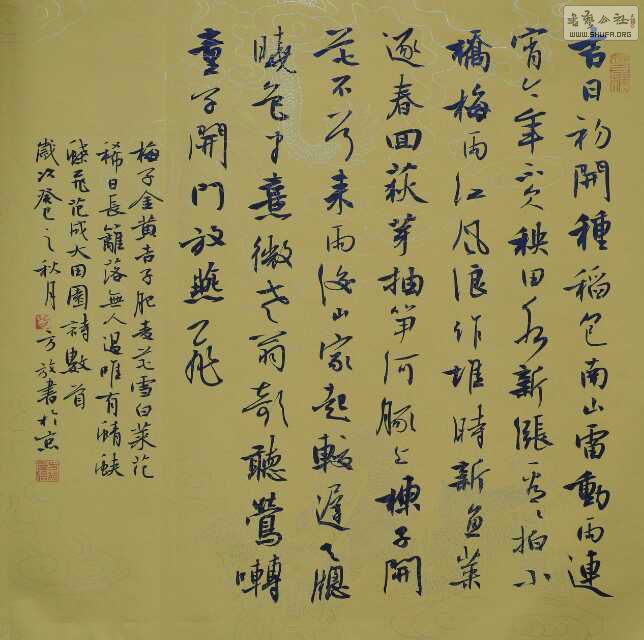 吉日初開種稻包南山雷動雨連
宵今年不欠秧田水新漲看看拍小
橋海雨江風浪作堆時新魚菜
逐春回荻芽抽筍河豚上楝子開
花石首來雨後山家起較遲天窗
曉色半熹微老翁欹聽鶯囀
童子開門放燕飛
梅子金黃杏子肥麥花雪白菜花
稀日長籬落無人過唯有蜻蛺
蝶飛范成大田園詩數首
歲次癸巳之秋月方放書於京
書藝公社
WWW.SHUFA.ORG